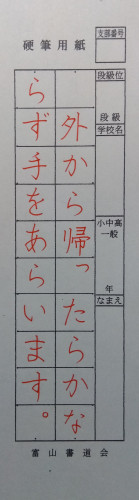 硬筆用紙
支部番号
段級位
段級
学校名
小中高
一般
年
なまえ
外から帰ったらかな
らず手をあらいます。
富山書道会